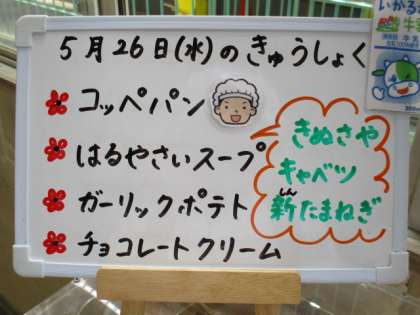 5月26日(水)のきゅうしょく
コッペパン
はるやさいスープ
ガーリックポテト
チョコレートクリーム
きぬさや
キャベツ
しん
新たまねぎ
いかる